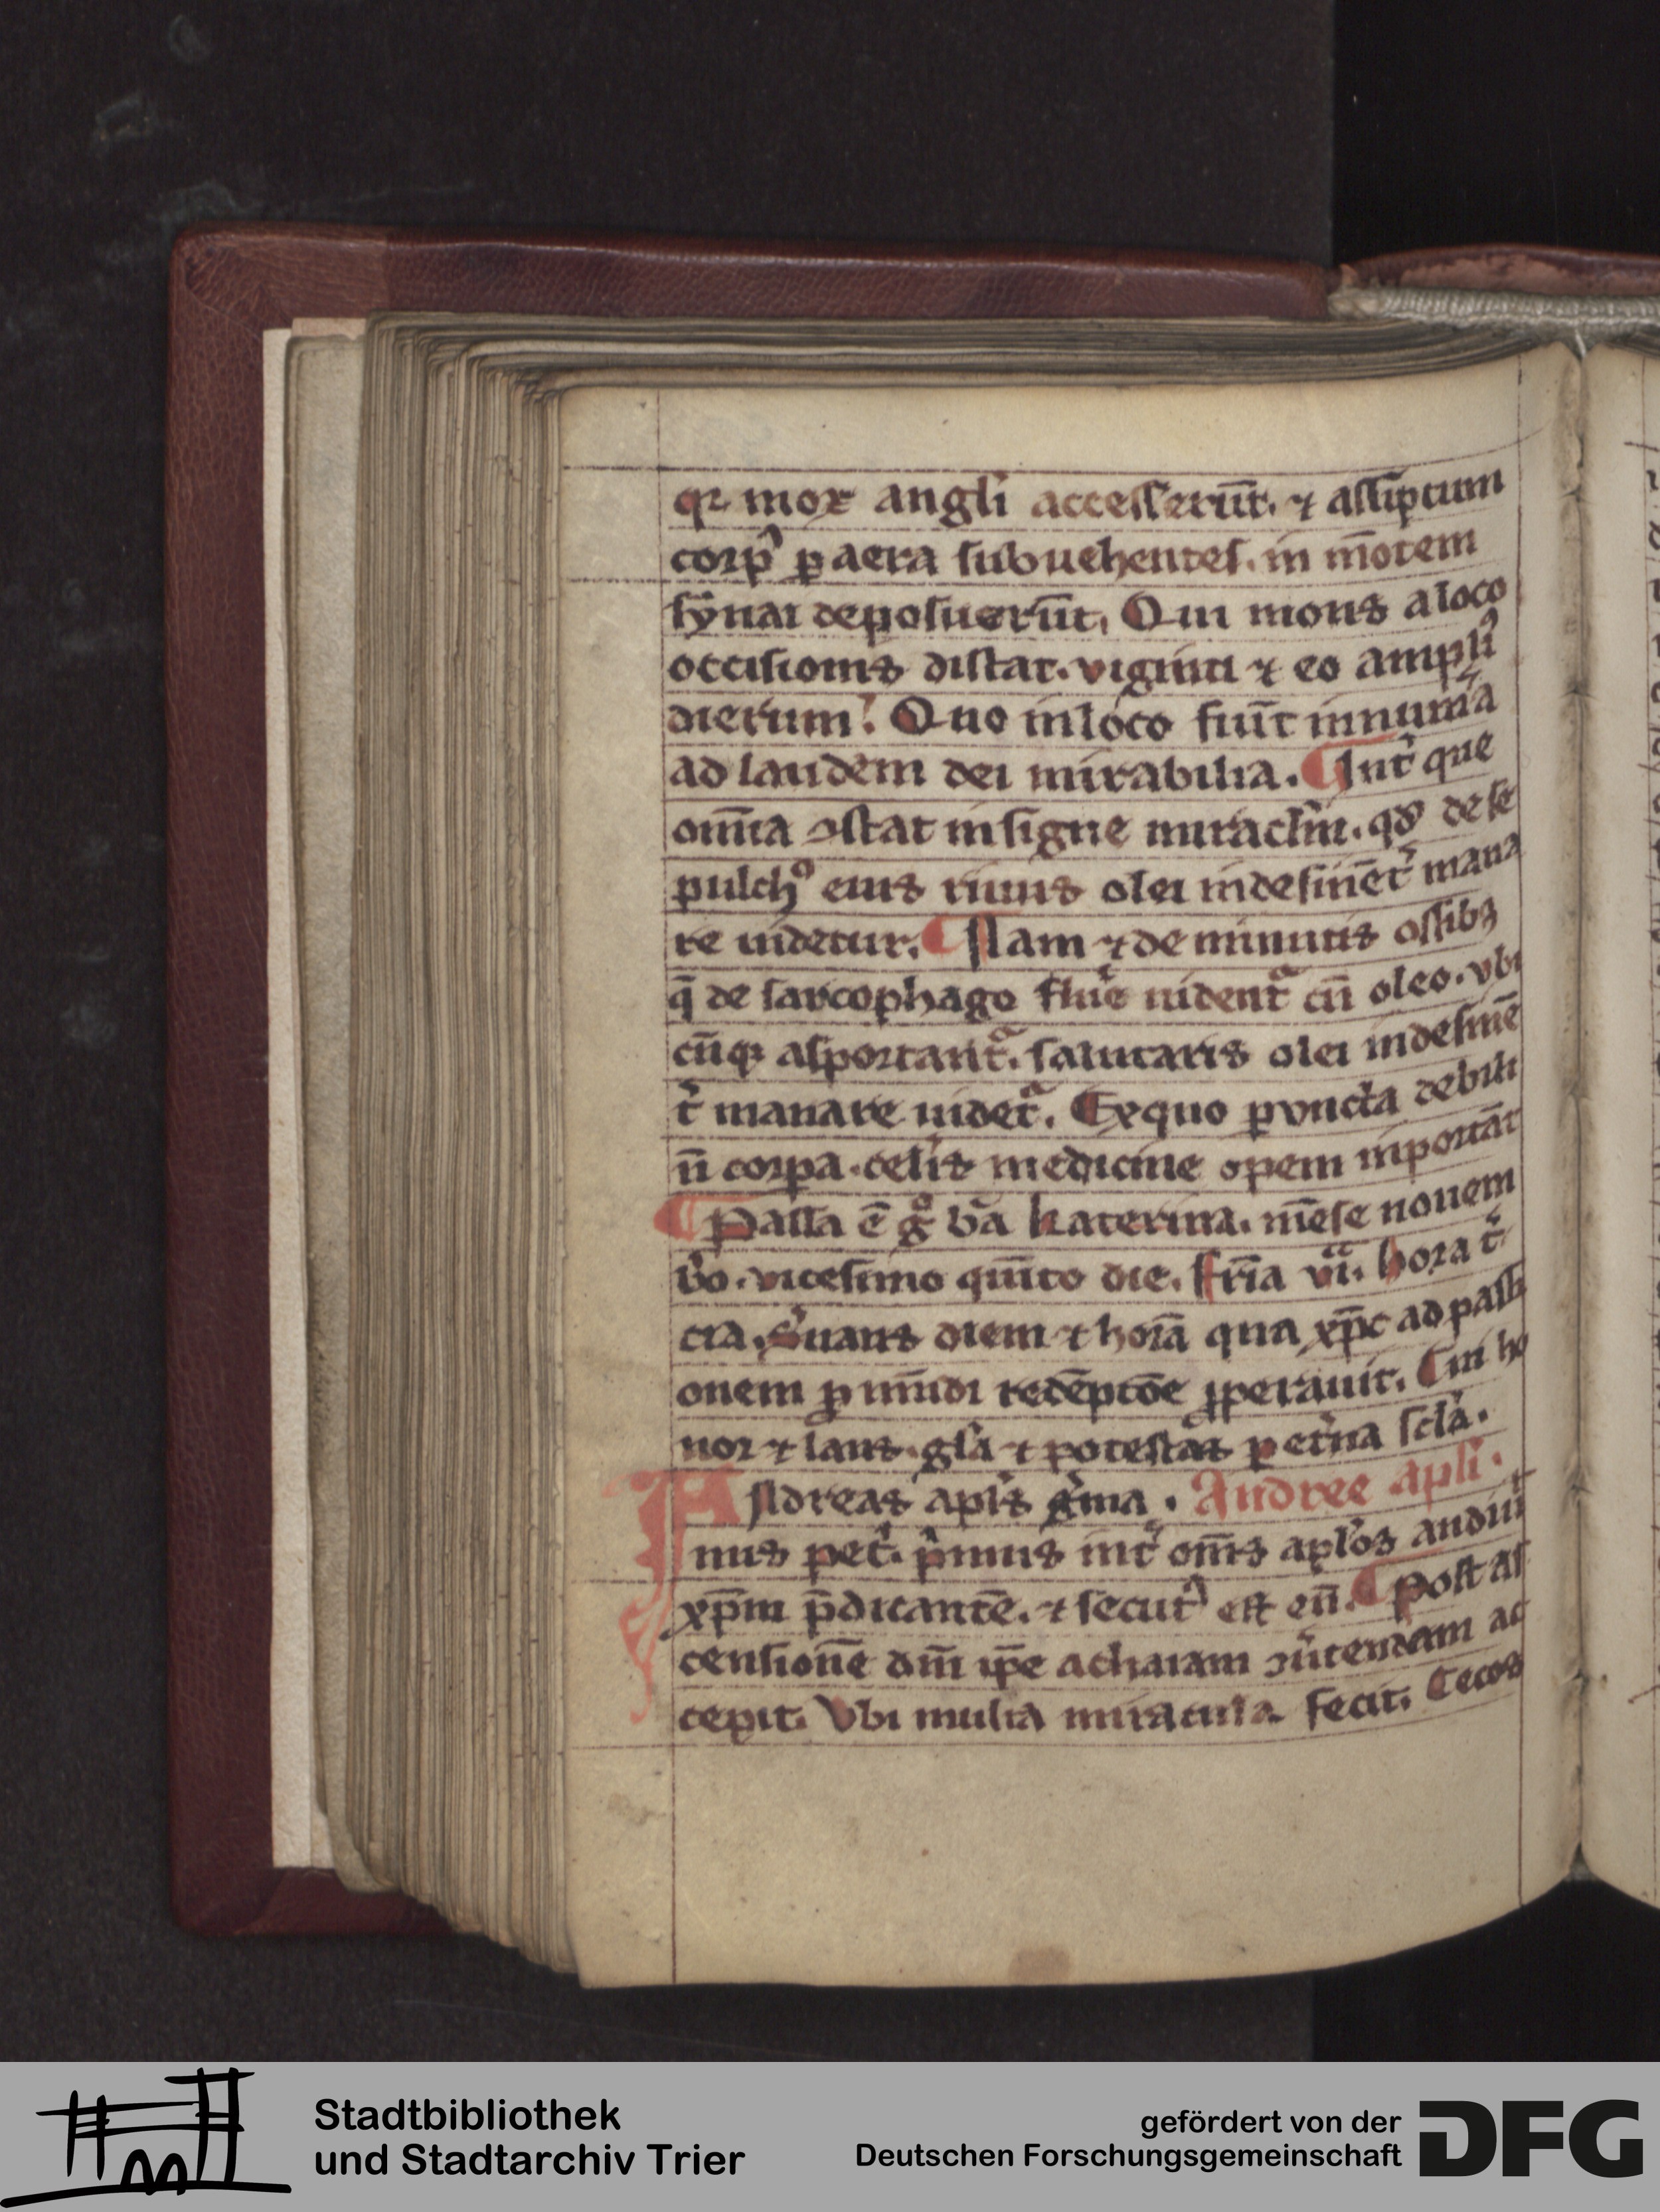 qꝛ mox angli accesserūt. ⁊ assūptum
corpꝰ ꝑ aera subuehentes. in mōtem
synai deposuerūt. Qui mons a loco
occisionis distat. viginti ⁊ eo ampliꝰ
dierum. Quo in loco fiūt innum̄a
ad laudem dei mirabilia. ¶ Int̉ que
om̄ia ꝯstat insigne miraclm̄. qđ de se
pulchº eius riuus olei indesinēt̉ mana
re uidetur. ¶ Nam ⁊ de minutis ossibꝫ
q̄ de sarcophago flue̾ uident̾ cū oleo. vbi
cūqꝫ asportant̾. salutaris olei indesinē
t̉ manare uidet̾. Ex quo ꝑuncta debili
ū corꝑa. celis̉ medicine opem inportāt
¶ Passa ē gº b̄a katerina. mēse nouem
b̾o. vicesimo quīto die. fr̄ia viͣ. hora t̾
cia. S̾uans diem ⁊ horā qua xp̄c ad passi
onem ꝓ mūdi redēptōe ꝓperauit. Cui ho
nor ⁊ laus. gl̄a ⁊ potestas ꝑ et̾na scl̄a.
ANdreas apl̄s g̾ma. Andree apl̄i.
nus pet̾. p̾mus int̾ om̄s apl̄os audiuit
xp̄m p̄dicantē. ⁊ secutꝰ est eū. ¶ Post as
censionē dn̄i ip̄e achaiam ꝯu̾tendam ac
cepit. Vbi multa miracula fecit. Cecos
Stadtbibliothek
und Stadtarchiv Trier
gefördert von der
Deutschen Forschungsgemeinschaft
DFG